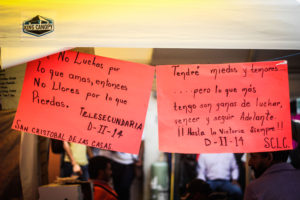 KING CANOPY
No Luchas por
lo que amas, entonces
No Llores por lo que
Pierdas.
TELESECUNDARIA
D-II-14
SAN CRISTOBAL DE LAS CASAS.
Tendré miedos y temores
....pero lo que más
tengo son ganas de luchar,
vencer y seguir Adelante.
¡¡Hasta la Victoria Siempre!!
D-II-14
SCLC.